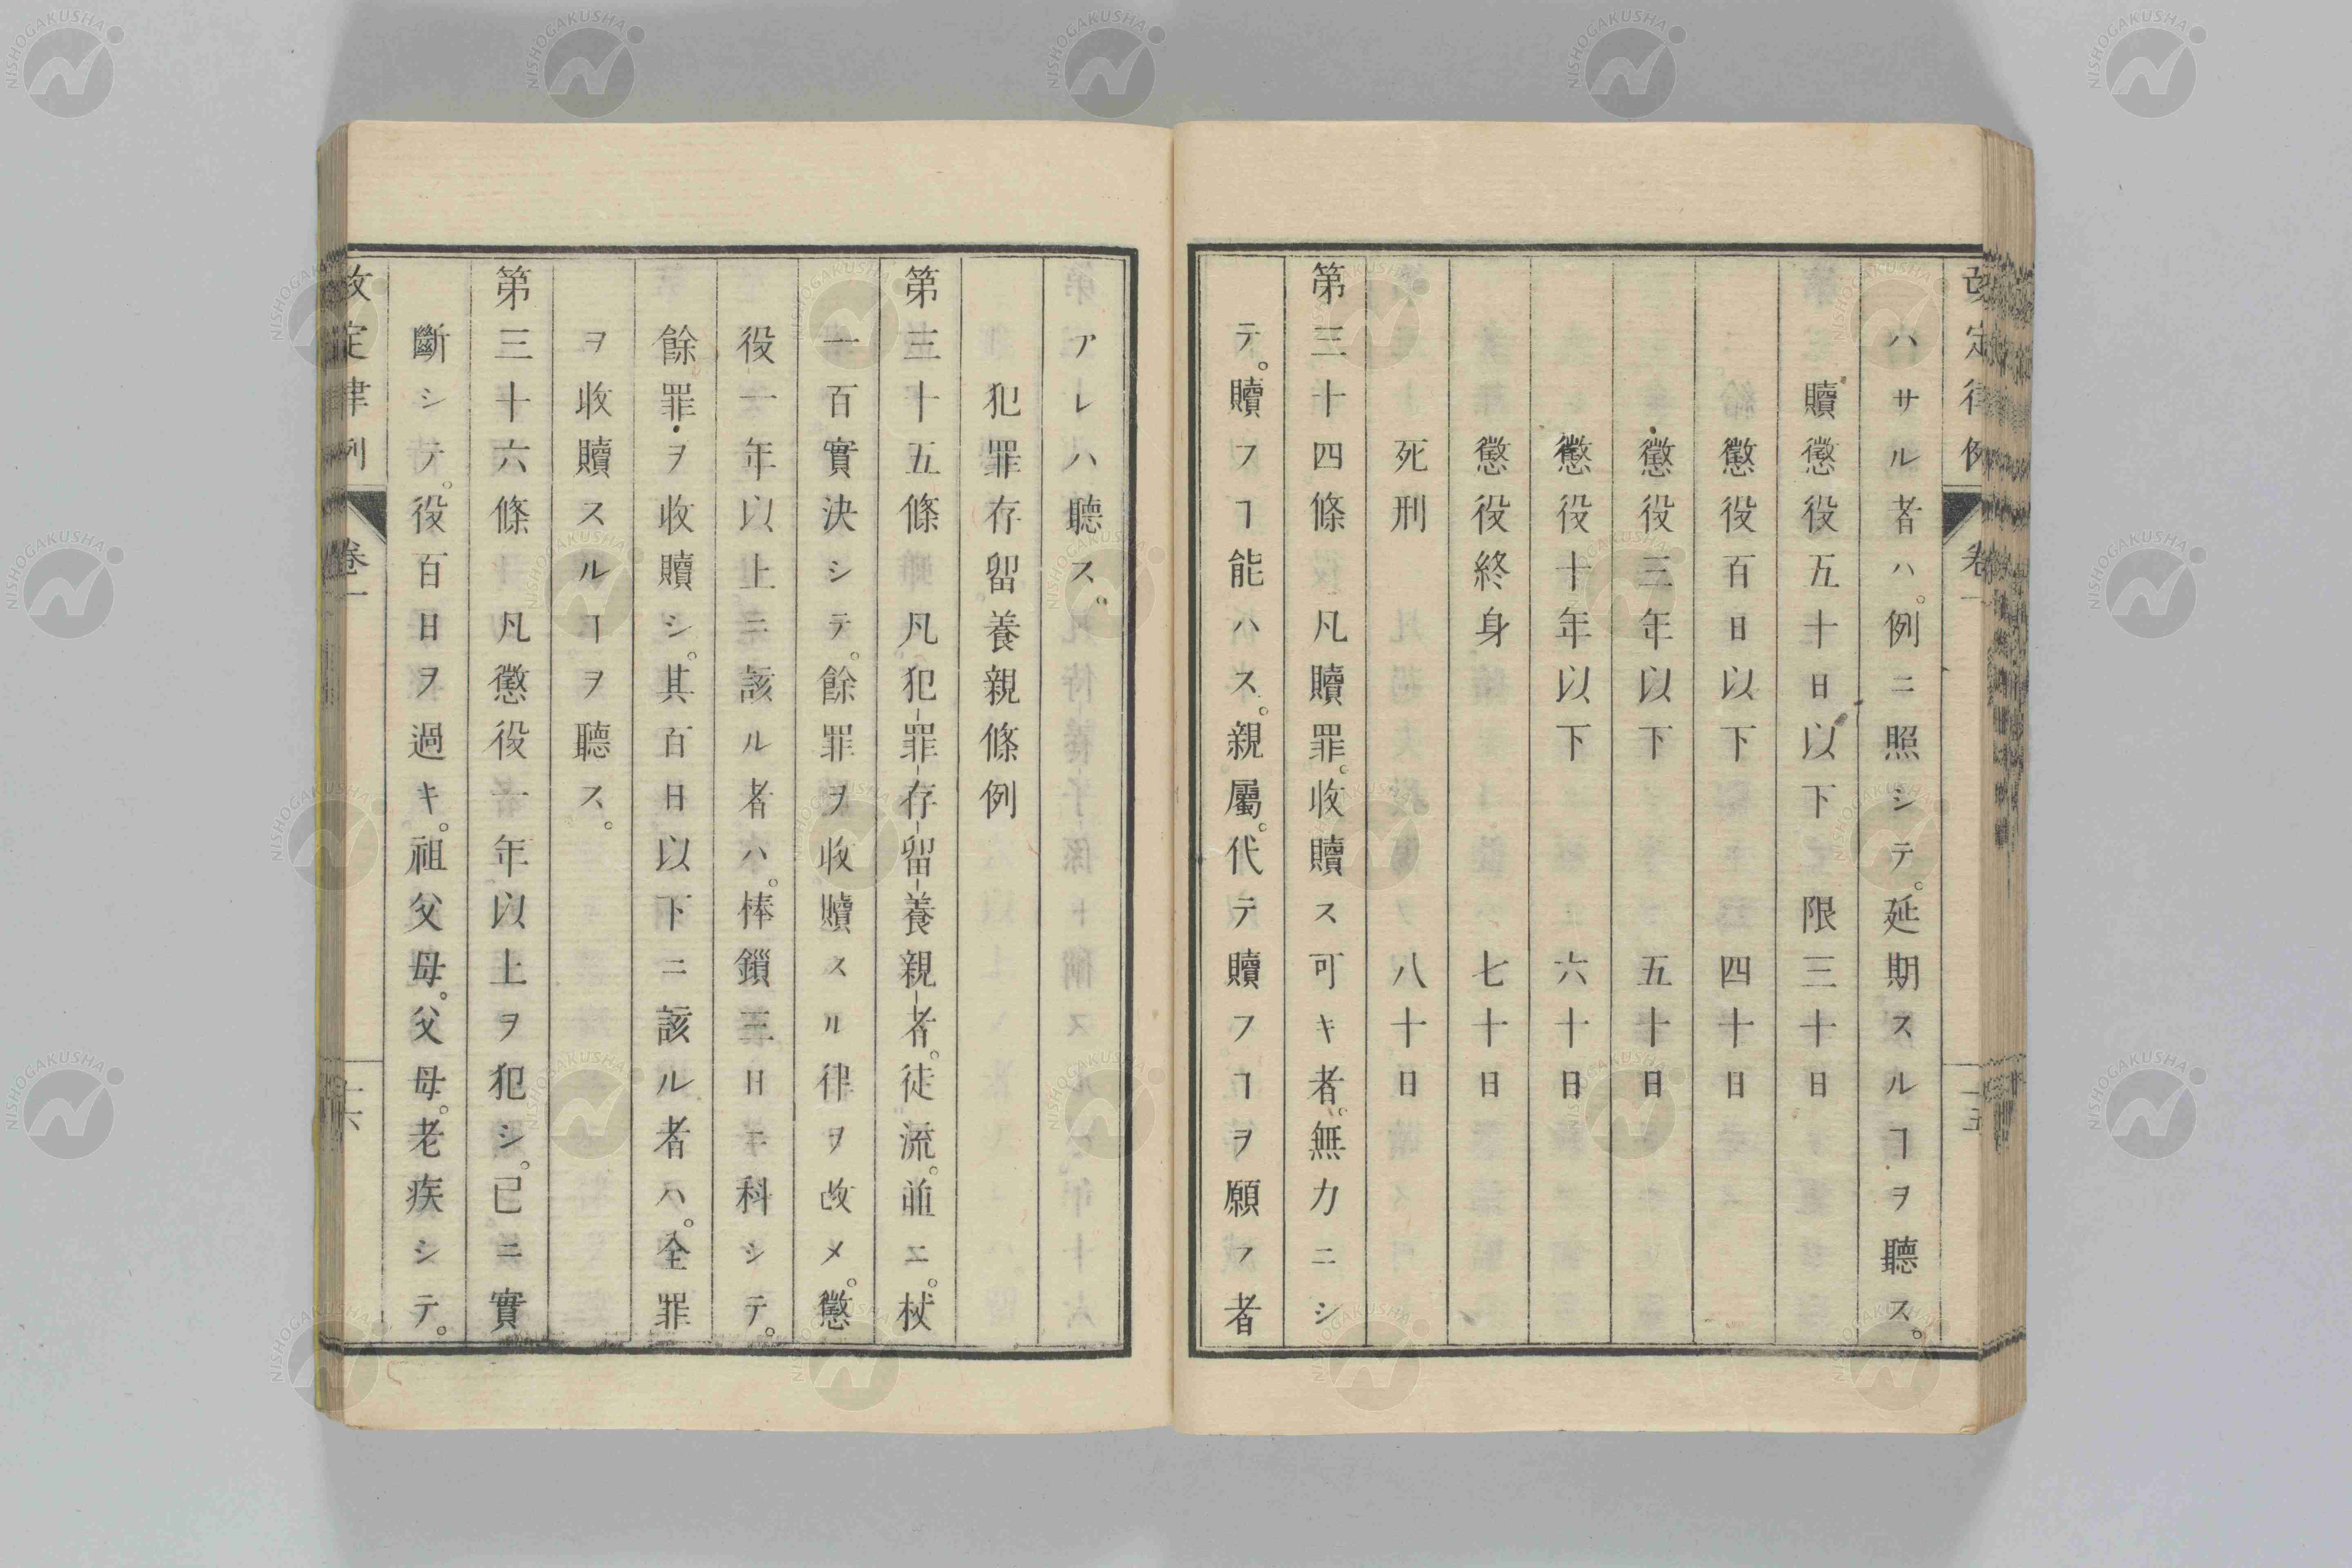 改定律例 卷一 十五
ハサル者ハ。例ニ照シテ。延期スルヿヲ聽ス。
贖懲役五十日以下 限三十日
懲役百日以下 四十日
懲役三年以下 五十日
懲役十年以下 六十日
懲役終身 七十日
死刑 八十日
第三十四條 凡贖罪。收贖ス可キ者。無力ニシ
テ。贖フヿ能ハス。親屬。代テ贖フヿヲ願フ者
アレハ聽ス。
犯罪存留養親條例
第三十五條 凡犯罪存留養親者。徒流。並ニ。杖
一百實決シテ。餘罪ヲ收贖スル律ヲ改メ。懲
役一年以上ニ該ル者ハ。棒鎖三日ニ科シテ。
餘罪ヲ收贖シ。其百日以下ニ該ル者ハ。全罪
ヲ收贖スルヿヲ聽ス。
第三十六條 凡懲役一年以上ヲ犯シ。已ニ實
斷シテ。役百日ヲ過キ。祖父母。父母。老疾シテ。
改定律例 卷一 十六
NISHOGAKUSHA